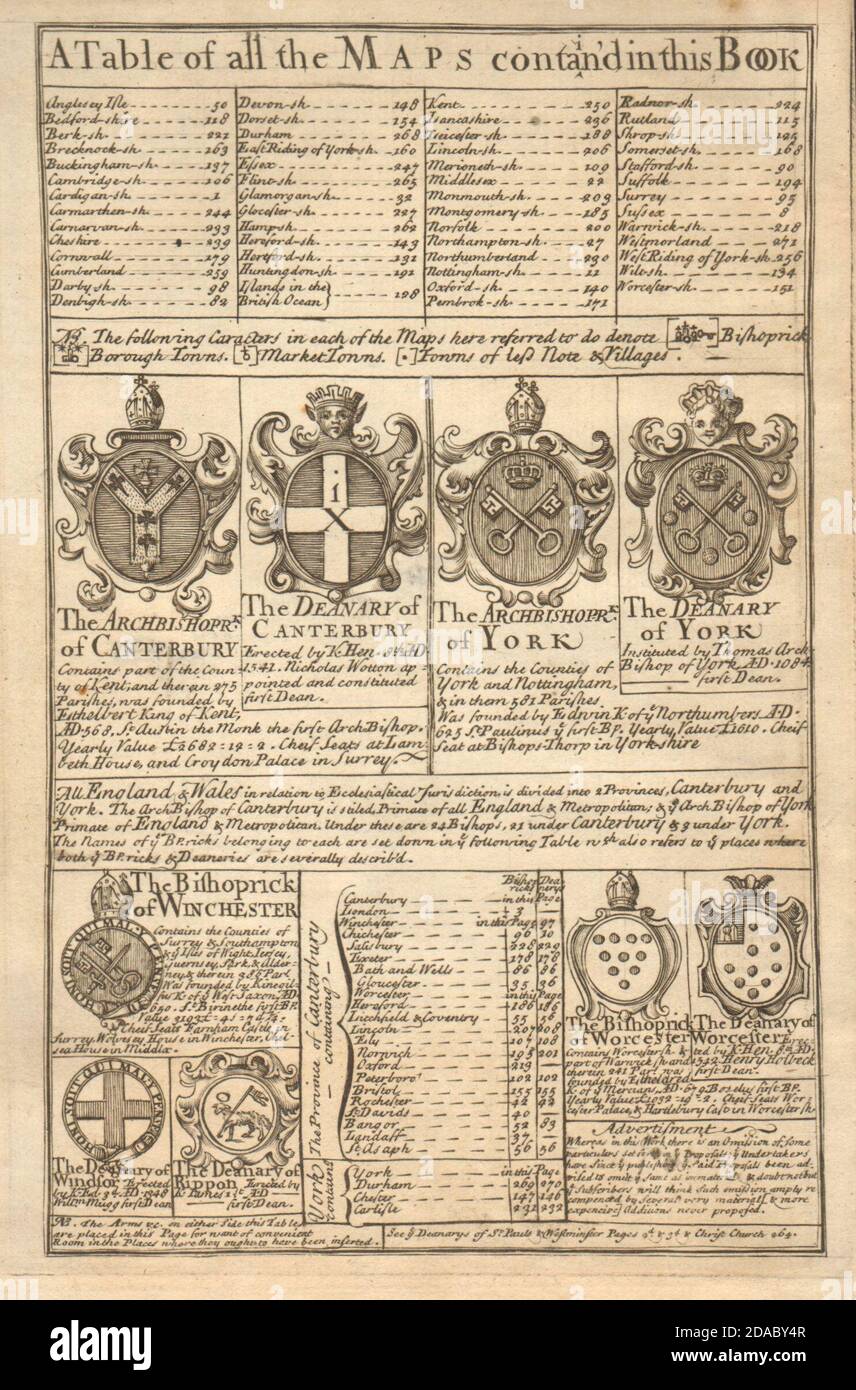 A Table of all the MAPS contain'd in this BOOK
Anglesey Isle 50
Bedford-shire 118
Berk-sh. 221
Brecknock-sh. 163
Buckingham-sh. 137
Cambridge-sh. 106
Cardigan-sh. 1
Carmarthen-sh. 244
Carnarvan-sh. 233
Cheshire 239
Cornwall 179
Cumberland 259
Darby-sh. 98
Denbigh-sh. 82
Devon-sh. 148
Dorset-sh. 154
Durham 268
East Riding of York-sh. 160
Essex 247
Flint-sh. 265
Glamorgan-sh. 32
Glocester-sh. 227
Hamp-sh. 262
Hereford-sh. 143
Hertford-sh. 131
Huntingdon-sh. 191
Islands in the
British Ocean} 128
Kent 250
Lancashire 236
Leicester-sh. 188
Lincoln-sh. 206
Merioneth-sh. 109
Middlesex 22
Monmouth-sh. 203
Montgomery-sh. 185
Norfolk 200
Northampton-sh. 27
Northumberland 230
Nottingham-sh. 11
Oxford-sh. 140
Pembrok-sh. 171
Radnor-sh. 224
Rutland 115
Shrop-sh. 125
Somerset-sh. 168
Stafford-sh. 90
Suffolk 194
Surrey 95
Sussex 8
Warwick-sh. 218
Westmorland 271
West Riding of York-sh. 256
Wilt-sh. 134
Worcester-sh. 151
NB. The following Caracters in each of the Maps here referred to do denote [ ] Bishoprick
[ ] Borough Towns. [ ] Market Towns. [ ] Towns of less Note & Villages.
i
X
The ARCHBISHOPR.k
of CANTERBURY
Contains part of the Coun-
ty of Kent; and therein 275
Parishes, was founded by
Esthelbert King of Kent,
AD. 568. St. Austin the Monk the first Arch Bishop.
Yearly Value £2682=12=2. Cheif Seats at Lam-
beth House, and Croydon Palace in Surrey.
The DEANARY of
CANTERBURY
Erected by K. Hen. 8th AD.
1541. Nicholas Wotton ap-
pointed and constituted
first Dean.
The ARCHBISHOPR.k
of YORK
Contains the Counties of
York and Nottingham,
& in them 581 Parishes
Was founded by Edwin K. of ye Northumbers. A.D.
625 St. Paulinus ye first BP. Yearly Value £1610. Cheif
Seat at Bishops-Thorp in Yorkshire
The DEANARY
of YORK
Instituted by Thomas Arch
Bishop of York AD. 1084
first Dean.
All England & Wales in relation to Ecclesiastical Jurisdiction, is divided into 2 Provinces, Canterbury and
York. The Arch Bishop of Canterbury is stiled, Primate of all England & Metropolitan; & ye Arch Bishop of York
Primate of England & Metropolitan. Under these are 24 Bishops, 21 under Canterbury & 3 under York.
The Names of ye BP.ricks belonging to each are set down in ye following Table wch also refers to ye places where
both ye BP.ricks & Deaneries are severally describ'd.
The Bishoprick
of WINCHESTER
Contains the Counties of
Surrey & Southampton
& ye Isles of Wight, Jersey,
Guernsey, Sark, & Alder-
ney, & therein Par.
Was founded by Kinegil-
sus K. of ye West Saxon, AD.
650. St. Birine the first BP.
Cheif Seats Farnham Castle in
Surrey, Wolvesey House in Winchester, Chel-
sea House in Middlx.
HONI SOIT QUI MAL Y PENSE
The Deanary of
Windsor Erected
by K. Ed. 3d. AD. 1348
Willm. Mugg first Dean
The Deanary of
Rippon Erected by
K. James 1st. AD.
first Dean.
The Province of Canterbury
containing
Bishop Dea
ricks nerys
Canterbury in this Page
London 3
Winchester in this Page 97
Chichester 96 10
Salisbury 228 229
Exeter 178 178
Bath and Wells 86 86
Gloucester 35 36
Worcester in this Page
Hereford 186 186
Litchfield & Coventry 15 56
Lincoln 207 208
Ely 107 108
Norwich 195 201
Oxford 219
Peterboro' 102 102
Bristol 155 155
Rochester 42 22
St. Davids 40
Bangor 52 83
Landaff 37
St. Asaph 56 56
York
containe
York in this Page
Durham 269 270
Chester 147 146
Carlisle 231 232
The Bishoprick
of Worcester
Contains Worcestersh. &
part of Warwicksh. and
therein 241 Par. was
founded by Etheldred
K. of ye Mercians, AD. 679. Bosel ye first BP.
Yearly Value £1032=19=2. Cheif Seats Wor-
cester Palace, & Hartlebury Cast. in Worcestersh.
The Deanary of
Worcester Erec-
ted by K. Hen. 8th AD.
1542. Henry Holbeck
first Dean.
Advertisment
Whereas in this Work there is an Omision of some
particulars set forth in ye Proposals ye Undertakers
have since ye publishing ye said Proposals been ad-
vised to omit ye same as immaterial & doubt not but
ye Subscribers will think such omission amply re-
compenced by several very material & more
expencive Additions never proposed.
NB. The Arms &c. on either side this Table
are placed in this Page for want of convenient
Room in the Places where they ought to have been inserted.
See ye Deanarys of St. Pauls & Westminster Pages 4th & 5th & Christ Church 264.
alamy
Image ID: 2DABY4R
www.alamy.com